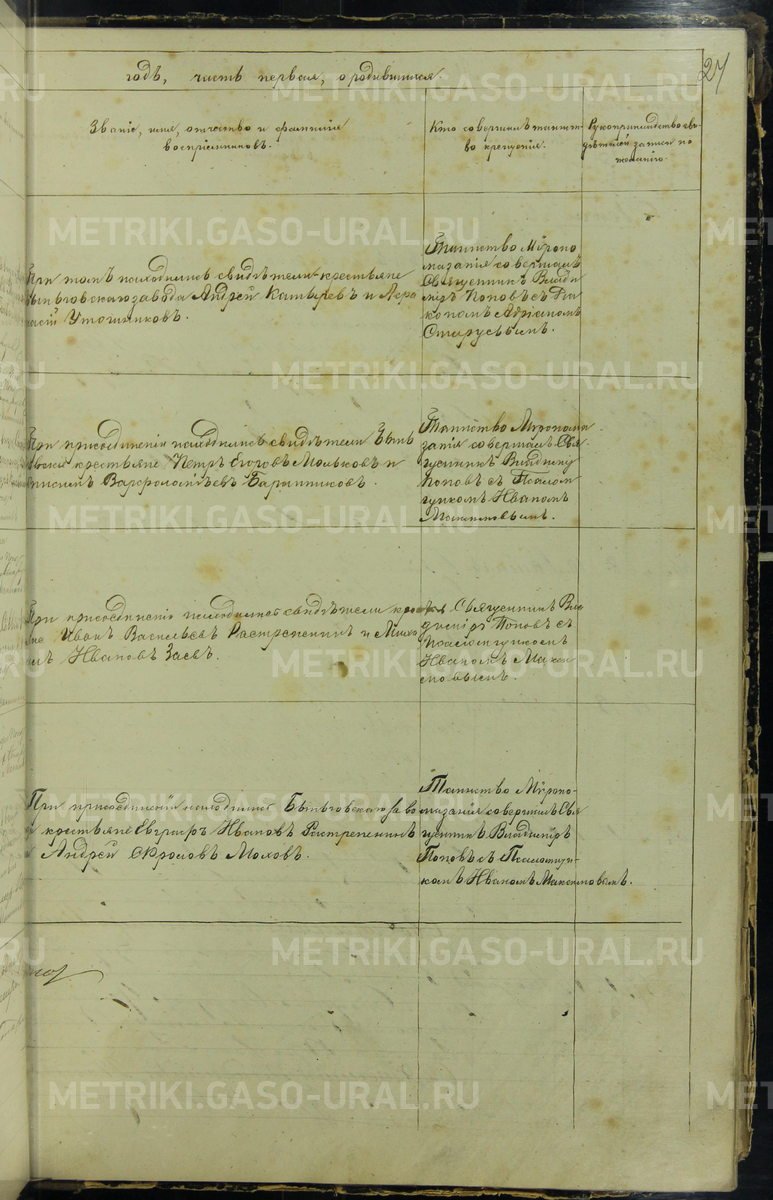 27
годъ, часть первая, о родившихся.
Званіе, имя, отчество и фамилія
воспріемниковъ.
Кто совершалъ таинст-
во крещенія.
Рукоприкладство сви-
дѣтелей записи по
желанію.
При томъ находились свидѣтели крестьяне
завода Андрей и
Утошниковъ.
Таинство Мѵропо
мазанія совершалъ
Священникъ Влади
міръ Поповъ съ Діа
кономъ Адріаномъ
При присоединеніи находились свидѣтели
крестьяне Петръ Егоровъ Мальковъ и
Варфоломѣевъ Баранниковъ.
Таинство Мѵропома
занія совершалъ Свя
щенникъ Владиміръ
Поповъ съ Псалом
щикомъ Иваномъ
Максимовымъ.
При присоединеніи находились свидѣтели
Иванъ Васильевъ Растрепенинъ и
Ивановъ Заевъ.
Священникъ Вла
диміръ Поповъ съ
Псаломщикомъ
Иваномъ Макси
мовымъ.
При присоединеніи находились заво
крестьяне Евграфъ Ивановъ Растрепенинъ
и Андрей Фроловъ Моховъ.
Таинство Мѵропо-
мазанія совершалъ Свя
щенникъ Владиміръ
Поповъ съ Псаломщи-
комъ Иваномъ Максимовымъ.
METRIKI.GASO-URAL.RU